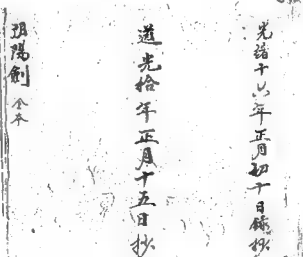 光緒十六年正月初十日錄抄
道光拾年正月十五日抄
陰陽劍 仝本